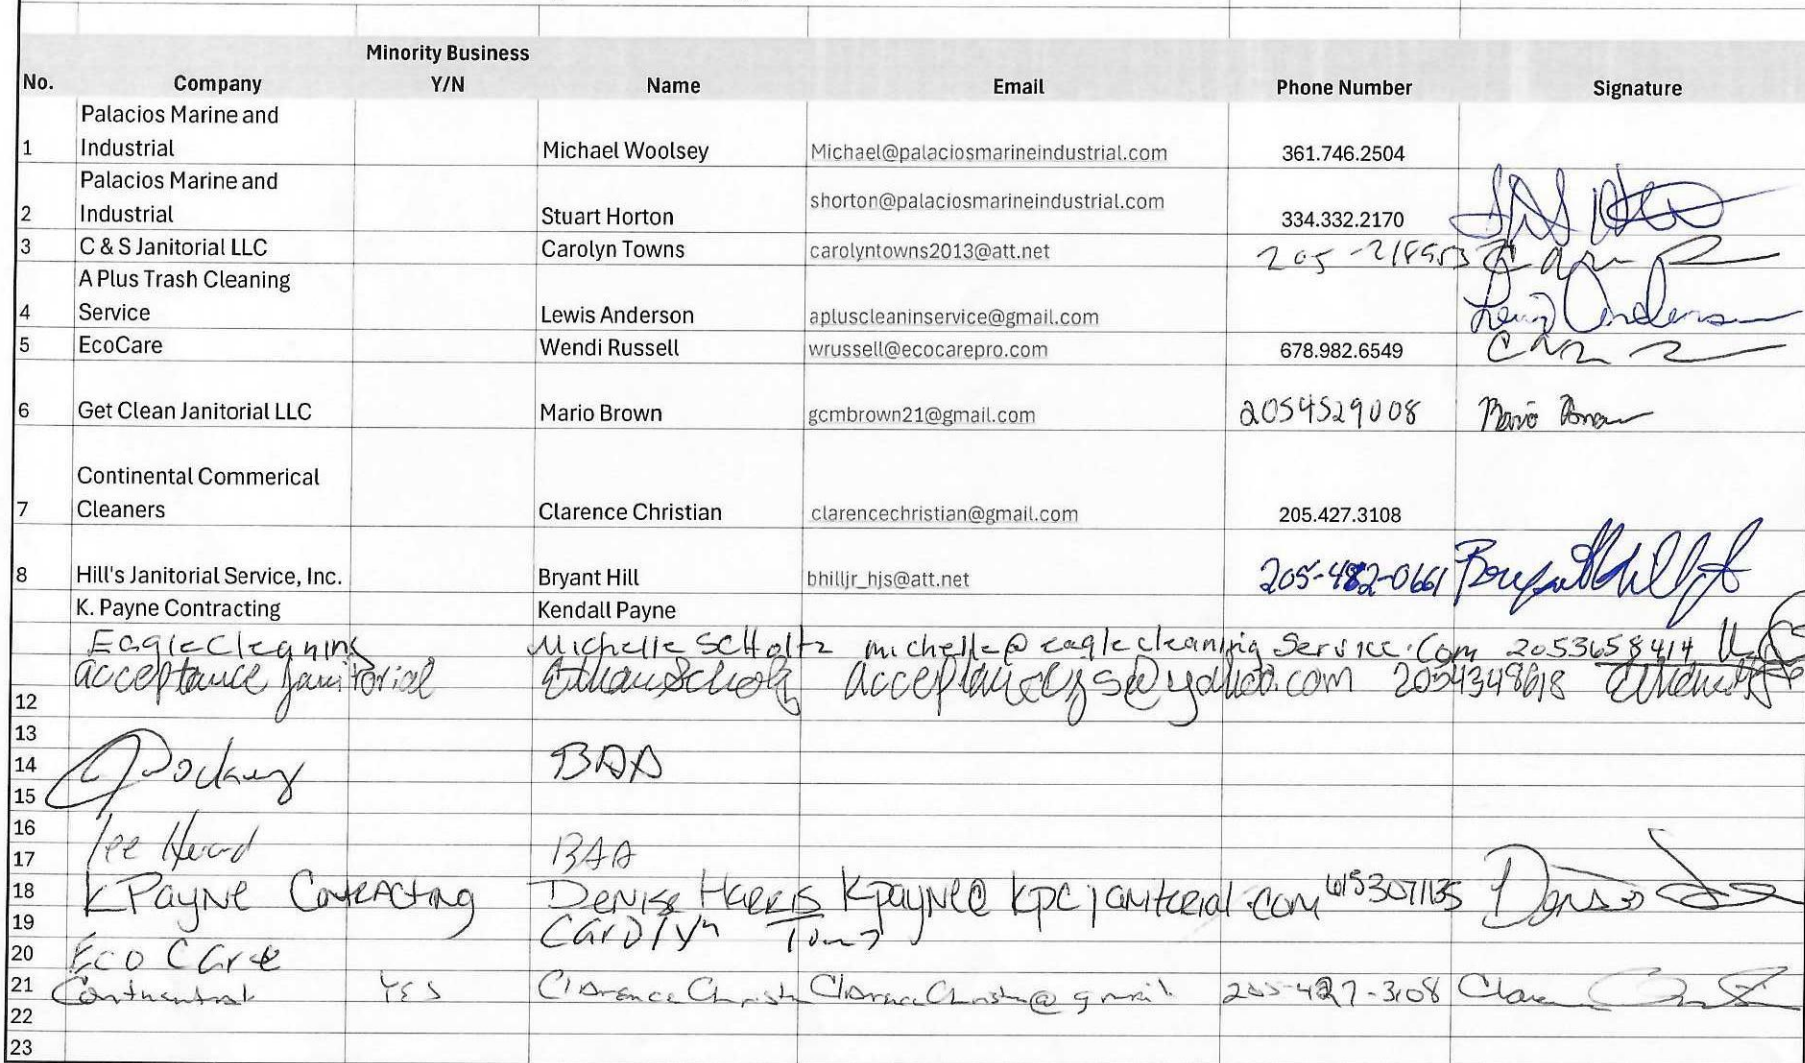 Minority Business
No. Company Y/N Name Email Phone Number Signature
Palacios Marine and
1 Industrial Michael Woolsey Michael@palaciosmarineindustrial.com 361.746.2504
Palacios Marine and
shorton@palaciosmarineindustrial.com
2 Industrial Stuart Horton 334.332.2170
3 C & S Janitorial LLC Carolyn Towns carolyntowns2013@att.net
A Plus Trash Cleaning
4 Service Lewis Anderson apluscleaninservice@gmail.com Lewis Anderson
5 EcoCare Wendi Russell wrussell@ecocarepro.com 678.982.6549
6 Get Clean Janitorial LLC Mario Brown gcmbrown21@gmail.com 2054529008 Mario Brown
Continental Commerical
7 Cleaners Clarence Christian clarencechristian@gmail.com 205.427.3108
8 Hill's Janitorial Service, Inc. Bryant Hill bhilljr_hjs@att.net 205-482-0661 Bryant Hill Jr
K. Payne Contracting Kendall Payne
Eagle Cleaning Michelle Scholtz michelle@eaglecleaningservice.com 2053658414
acceptance janitorial
12
13
14 BAA
15
16
17 BAA
18 K Payne Contracting Denise Harris Kpayne@kpcjanitorial.com 6153071135
19 Carolyn
20 Eco Care
21 Continental YES Clarence 205-427-3108
22
23